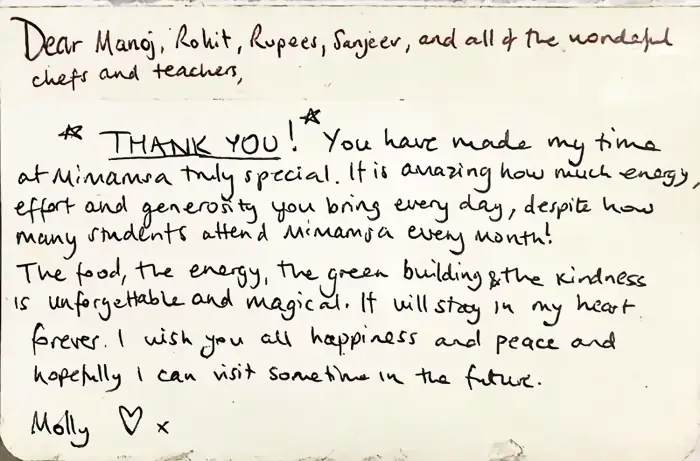 Dear Manoj, Rohit, Rupees, Sanjeev, and all of the wonderful
chefs and teachers,
☆ THANK YOU! ☆ You have made my time
at Mimamsa truly special. It is amazing how much energy,
effort and generosity you bring every day, despite how
many students attend Mimamsa every month!
The food, the energy, the green building & the kindness
is unforgettable and magical. It will stay in my heart
forever. I wish you all happiness and peace and
hopefully I can visit sometime in the future.
Molly ♡ x